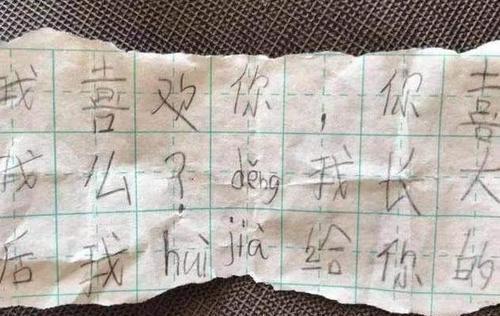 我喜欢你，你喜
我么？děng我长大
后我huì jià给你的